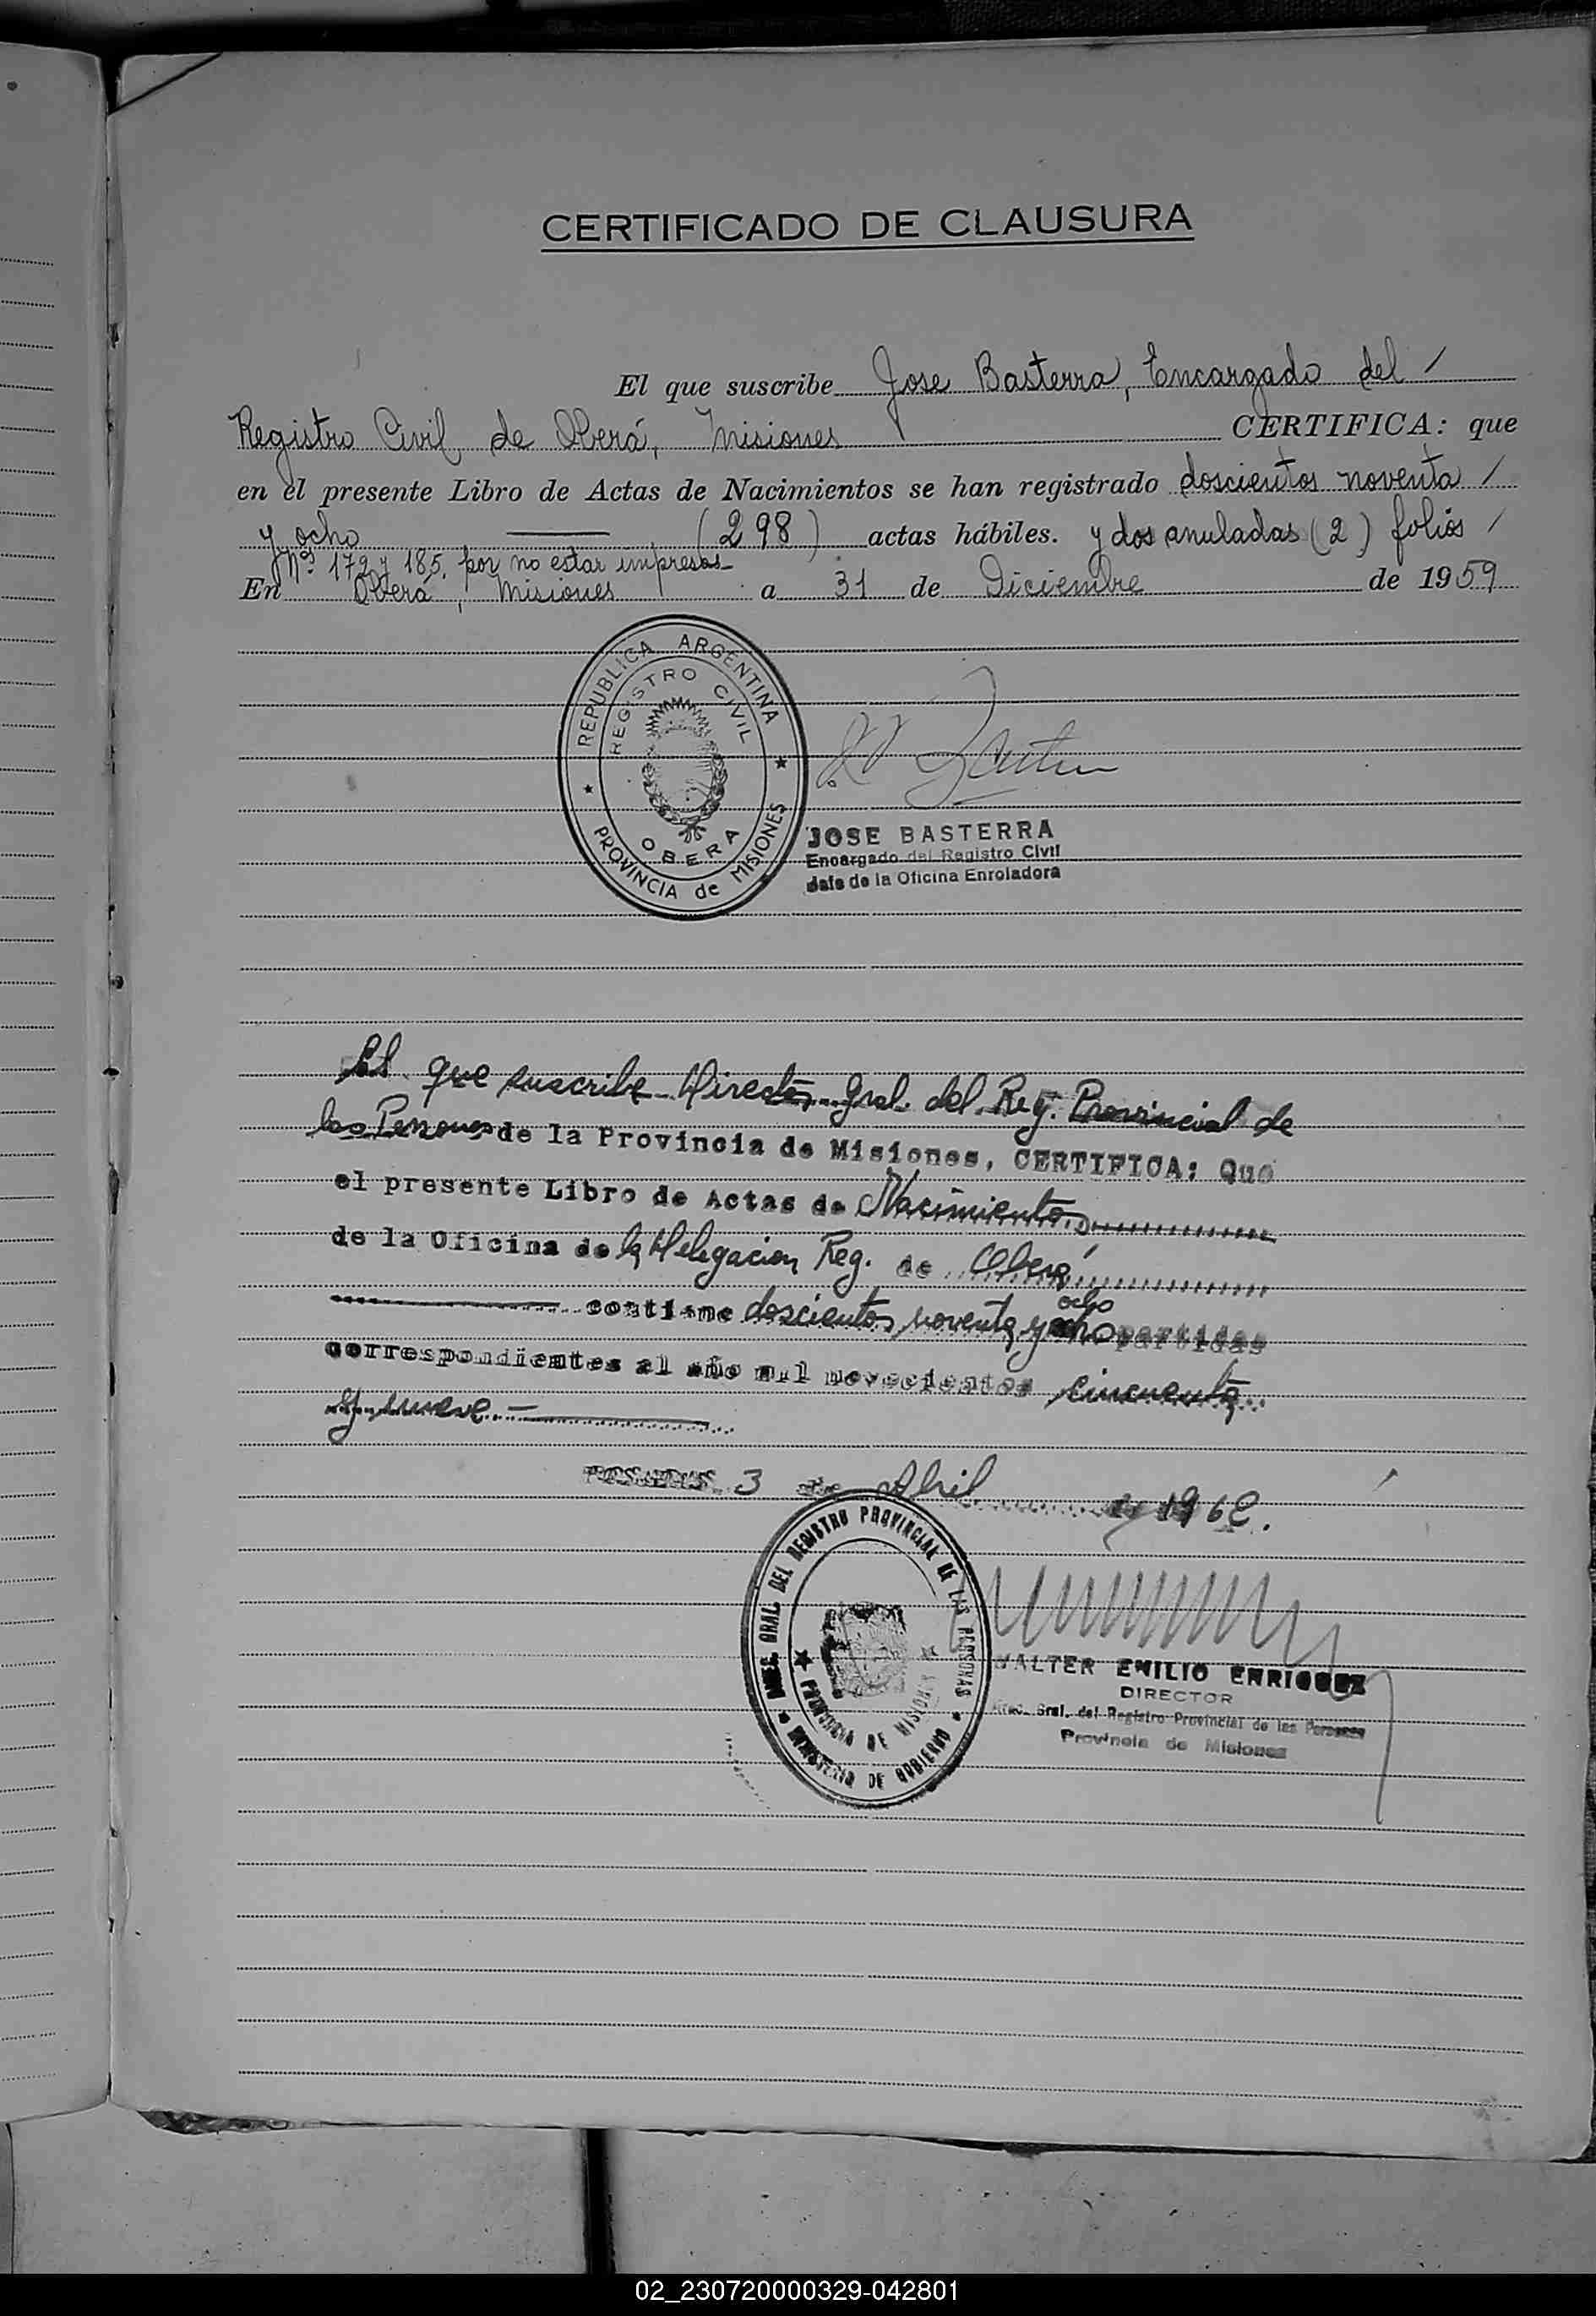 CERTIFICADO DE CLAUSURA
El que suscribe Jose Basterra, Encargado del /
Registro Civil de Oberá, Misiones CERTIFICA: que
en el presente Libro de Actas de Nacimientos se han registrado doscientos noventa /
y ocho (298) actas hábiles. y dos anuladas (2) folios /
Nos 179 y 185, por no estar impresas
En Oberá, Misiones a 31 de Diciembre de 1959
REPUBLICA ARGENTINA
REGISTRO CIVIL
OBERA
PROVINCIA de MISIONES
JOSE BASTERRA
Encargado del Registro Civil
Jefe de la Oficina Enroladora
El que suscribe Director Gral. del Reg. Provincial de
las Personas de la Provincia de Misiones, CERTIFICA: Que
el presente Libro de Actas de Nacimientos
de la Oficina de la Delegacion Reg. de Oberá
ocho
contiene doscientos noventa y ocho partidas
correspondientes al año mil novecientos cincuenta
y nueve.-
POSADAS 3 de Abril de 1962.
DIREC. GRAL. DEL REGISTRO PROVINCIAL DE LAS PERSONAS
PROVINCIA DE MISIONES
MINISTERIO DE GOBIERNO
WALTER EMILIO ENRIQUEZ
DIRECTOR
Direc. Gral. del Registro Provincial de las Personas
Provincia de Misiones
02_230720000329-042801